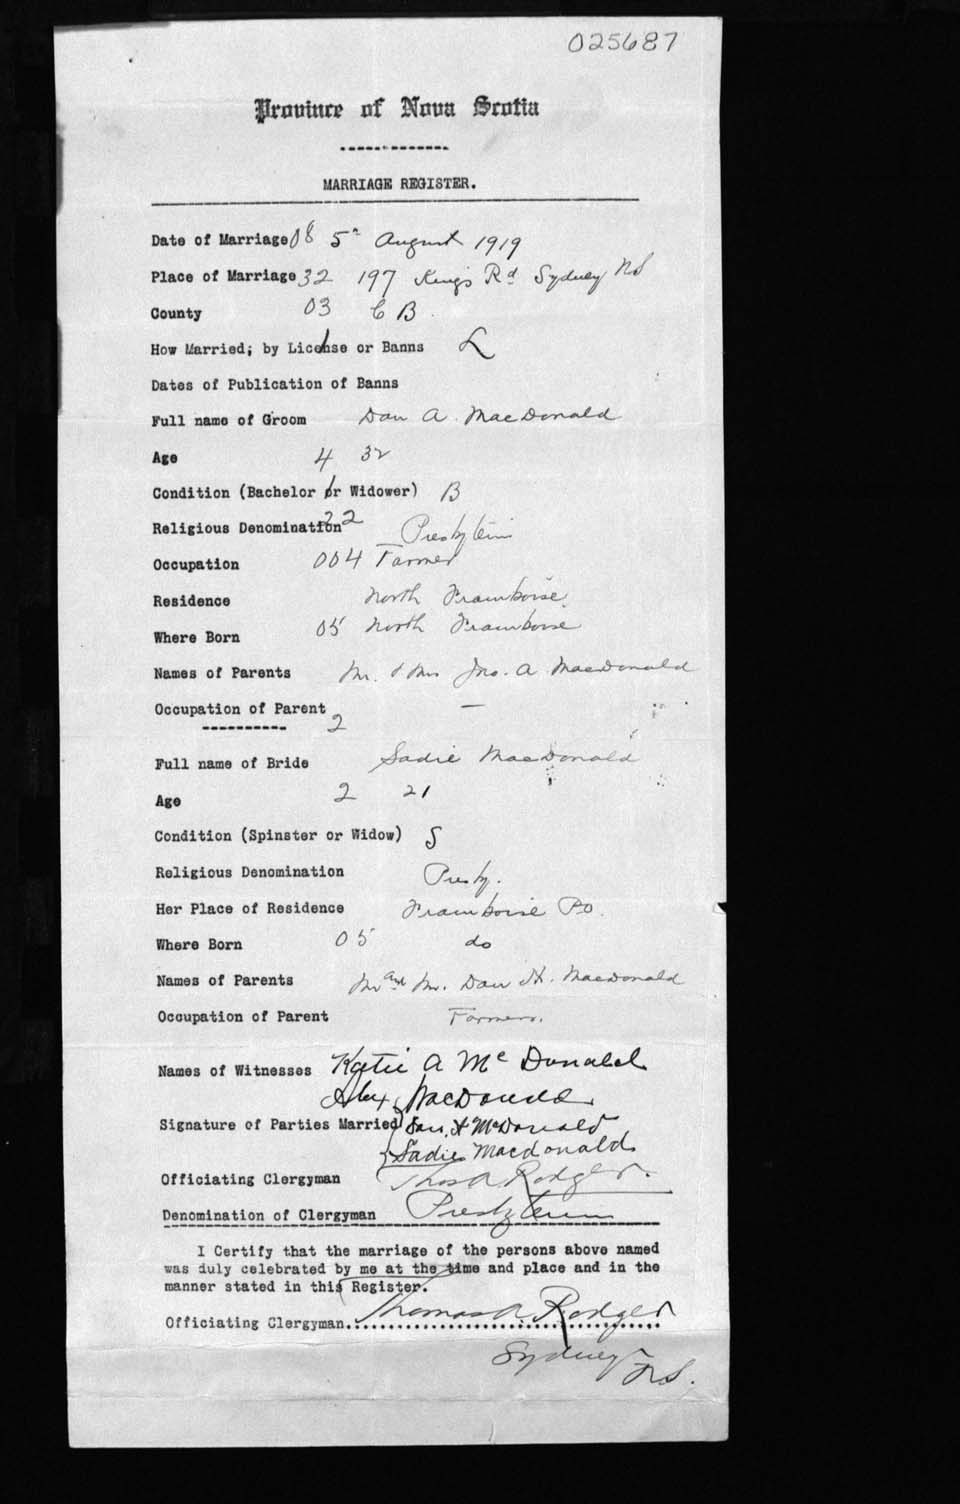 025687
Province of Nova Scotia
MARRIAGE REGISTER.
Date of Marriage 08 5th August 1919
Place of Marriage 32 197 Kings Rd Sydney NS
County 03 C B
How Married; by License or Banns L
Dates of Publication of Banns
Full name of Groom Dan A. MacDonald
Age 4 32
Condition (Bachelor or Widower) B
Religious Denomination 22 Presbyterin
Occupation 004 Farmer
Residence North Framboise
Where Born 05 North Framboise
Names of Parents Mr. & Mrs Jno. A MacDonald
Occupation of Parent —
2
Full name of Bride Sadie MacDonald
Age 2 21
Condition (Spinster or Widow) S
Religious Denomination Presby.
Her Place of Residence Framboise PO.
Where Born 05 do
Names of Parents Mr and Mr. Dan H. MacDonald
Occupation of Parent Farmers.
Names of Witnesses Katie A Mc Donald
Alex MacDonald
Signature of Parties Married Dan A McDonald
Sadie Macdonald
Officiating Clergyman Thos A Rodger.
Denomination of Clergyman Presbyterin
I Certify that the marriage of the persons above named
was duly celebrated by me at the time and place and in the
manner stated in this Register.
Officiating Clergyman Thomas A. Rodger
Sydney N.S.